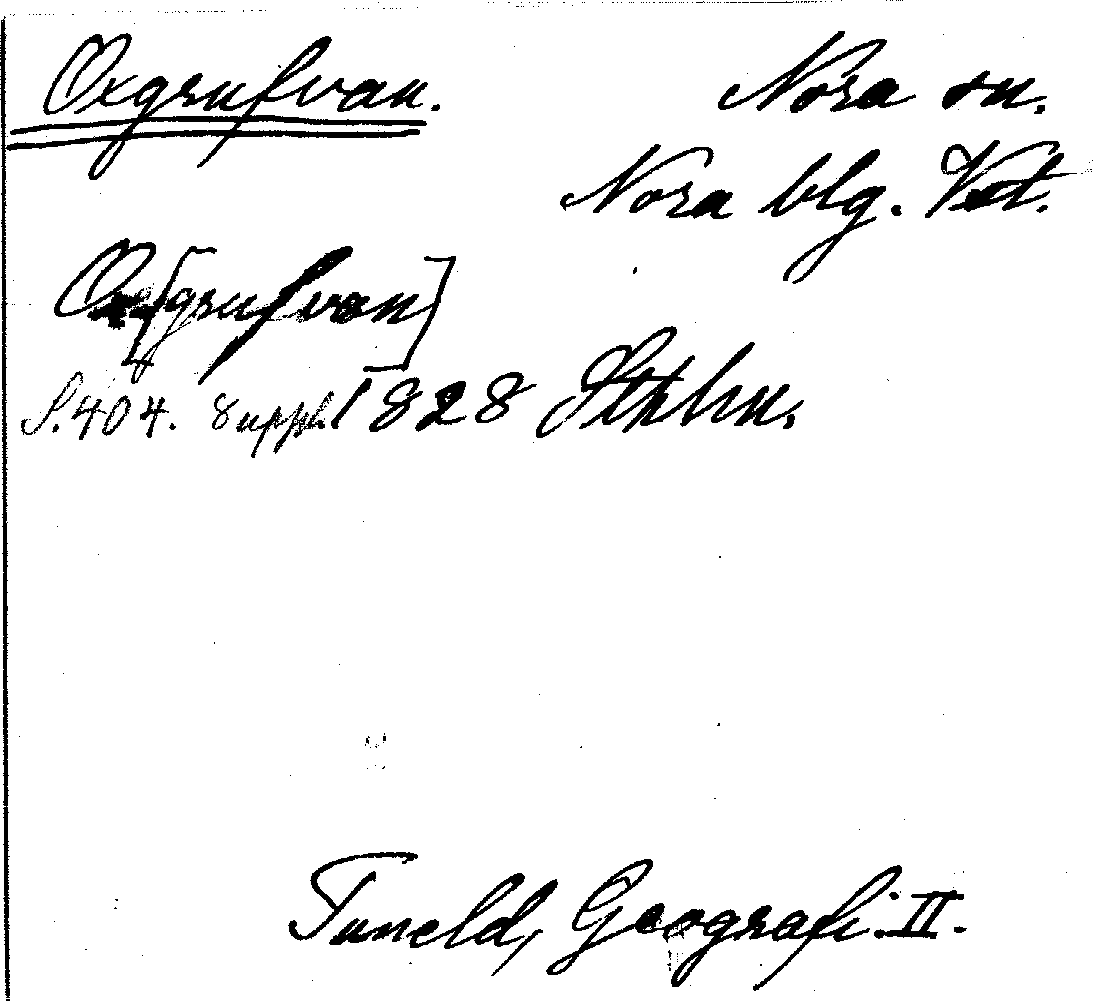 Oxgrufvan. Nora sn.
Nora blg. Vstl.
Ox[grufvan]
S. 404. Suppl. 1828 Sthlm.
Tuneld, Geografi II.